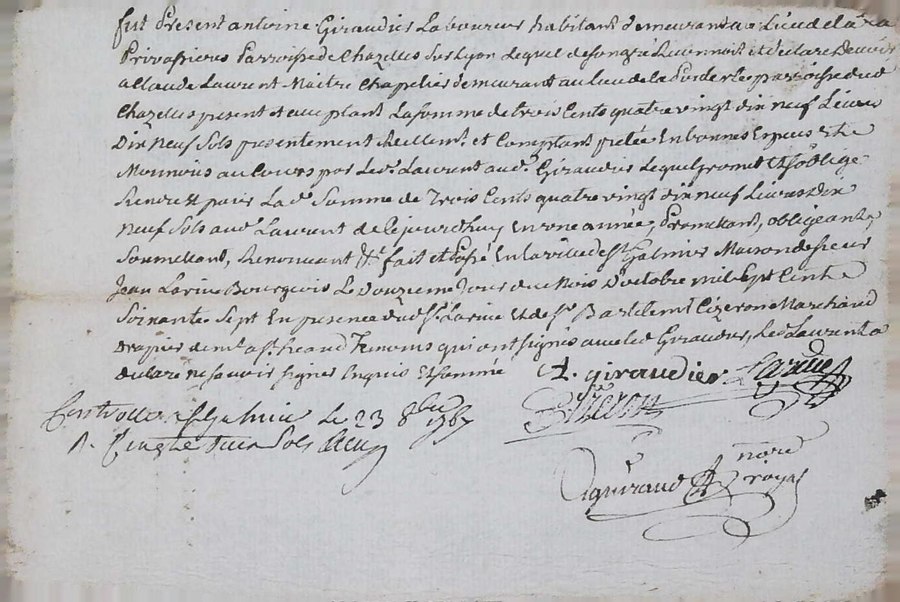 fut Present antoine Giraudier Laboureur habitant demeurant au Lieu de la
Parroisse de Chazelles sur Lyon Lequel de son gré Reconnoit et declare Devoir
a Claude Laurent Maitre Chapelier demeurant au Lieu de parroisse dud
Chazelles present et acceptant La somme de trois Cents quatre vingt dix neuf Livres
Dix Neuf Sols presentement Reellemt et Comptant pretée En bonnes Especes et de
Monnoies au Cours par Led. Laurent aud. Giraudier Lequel promet et s'oblige
Rendre et payer La de Somme de Trois Cents quatre vingt dix neuf Livres dix
neuf Sols aud Laurent de Cejourd'huy En une année, Promettant, obligeant,
Soumettant, Renoncant &c fait et Passé En la ville de St Galmier Maison de sieur
Jean Larive Bourgeois Le Douzeme Jour du Mois D'octobre mil sept Cent
Soixante Sept En presence dud Sr. Larive Et de Sr. Barthelemi Cizeron Marchand
drapier demt a St. heand Temoins qui ont signés avec led Giraudier, Led Laurent a
declaré ne savoir signer Enquis Et sommé A. giraudier Larive
Cizeron
Controllé a St Galmier Le 23 8bre 1767
R. Sols
giraud nore
royal